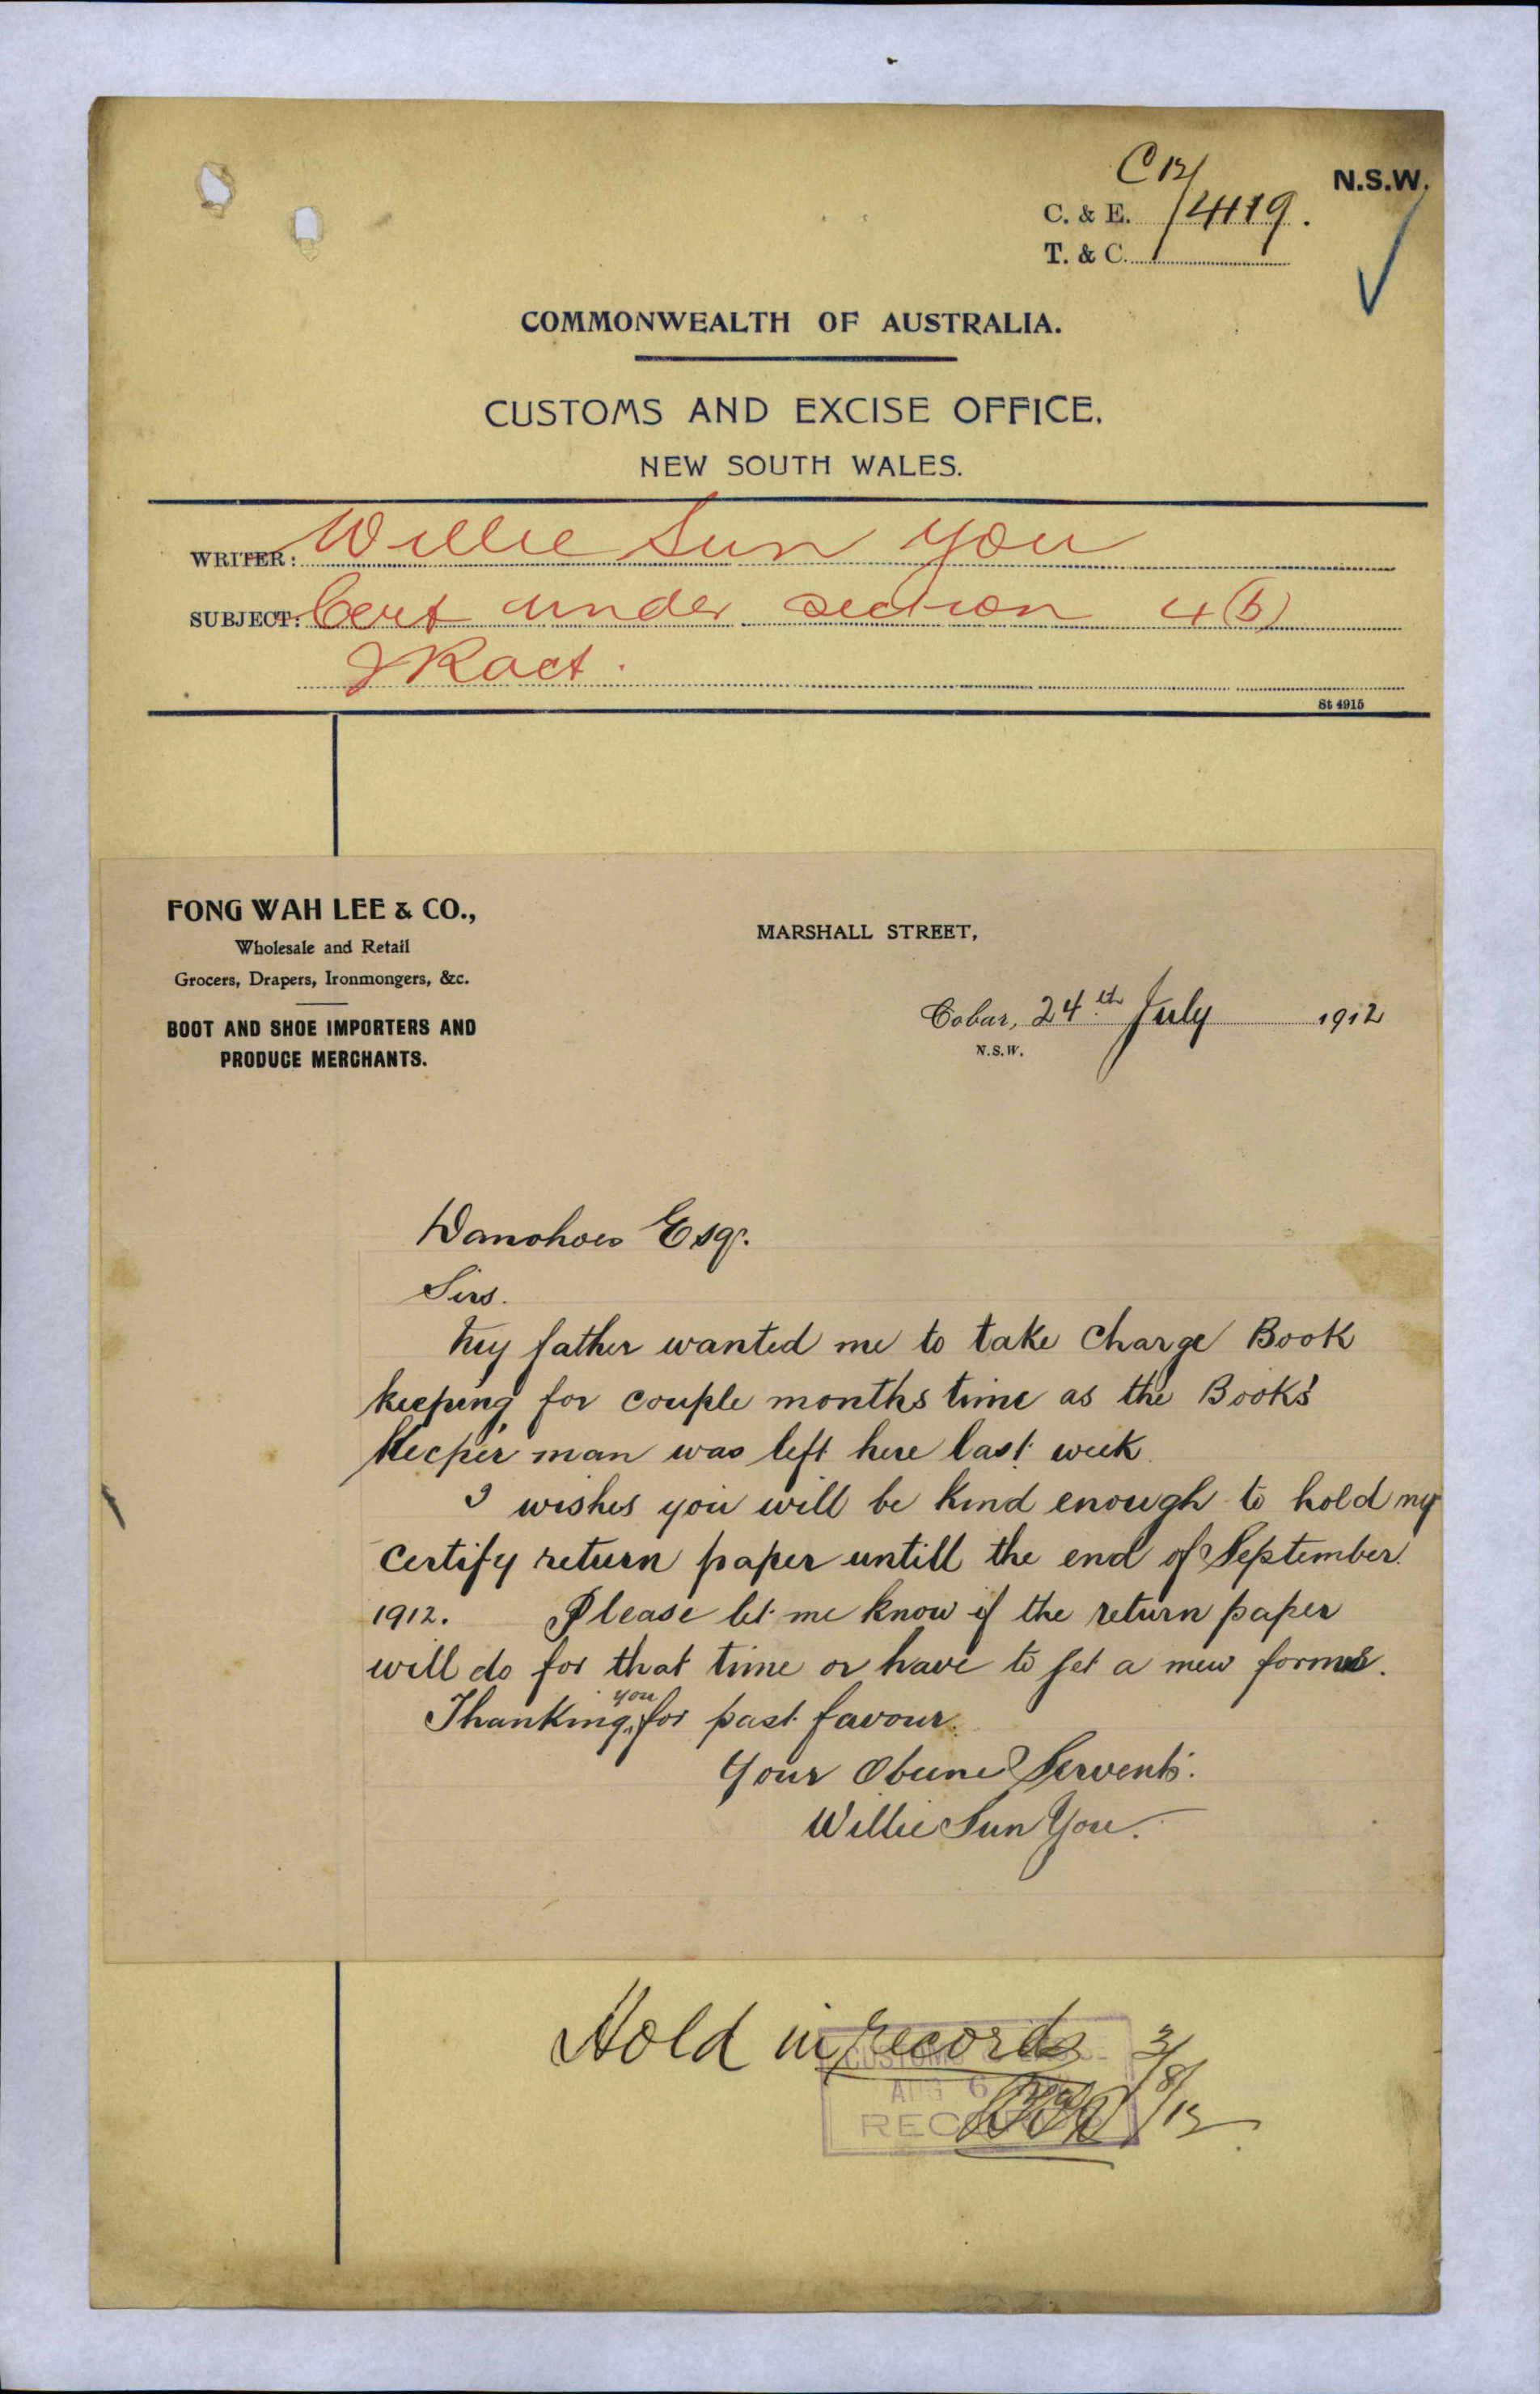 C12/
N.S.W.
C. & E. 14119.
T. & C.
COMMONWEALTH OF AUSTRALIA.
CUSTOMS AND EXCISE OFFICE,
NEW SOUTH WALES.
WRITER: Willie Sun You
SUBJECT: Cert under section 4(b)
I R act.
St 4915
FONG WAH LEE & CO.,
Wholesale and Retail
Grocers, Drapers, Ironmongers, &c.
BOOT AND SHOE IMPORTERS AND
PRODUCE MERCHANTS.
MARSHALL STREET,
Cobar, 24th July 1912
N.S.W.
Donohoes Esqr.
Sirs.
My father wanted me to take Charge Book
keeping for couple months time as the Books
Keeper man was left here last week.
I wishes you will be kind enough to hold my
Certify return paper untill the end of September
1912. Please let me know if the return paper
will do for that time or have to get a new forms.
Thanking you for past favour.
Your Servents.
Willie Sun You.
Hold in records
3/8/12
CUSTOMS
AUG 6
RECORDS